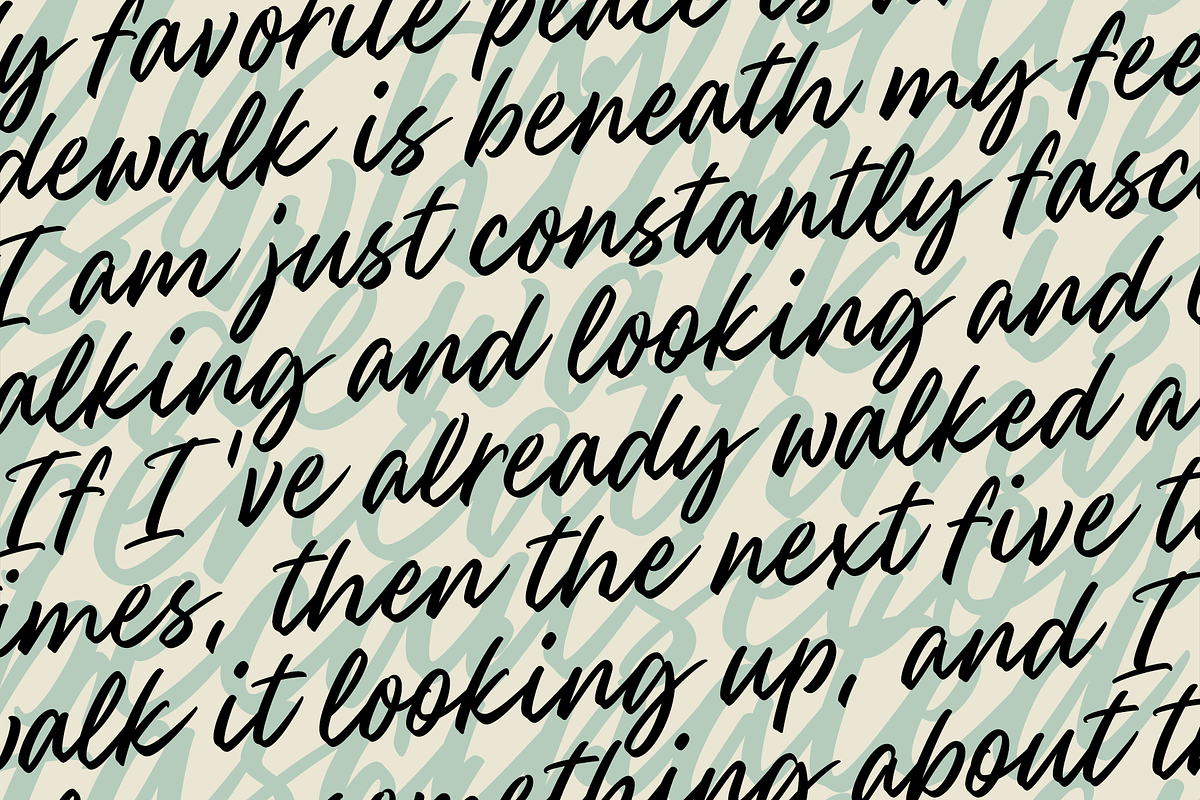 y favorite place is
dewalk is beneath my fee
I am just constantly fasc
alking and looking and
If I've already walked a
imes, then the next five t
walk it looking up, and I
something about t